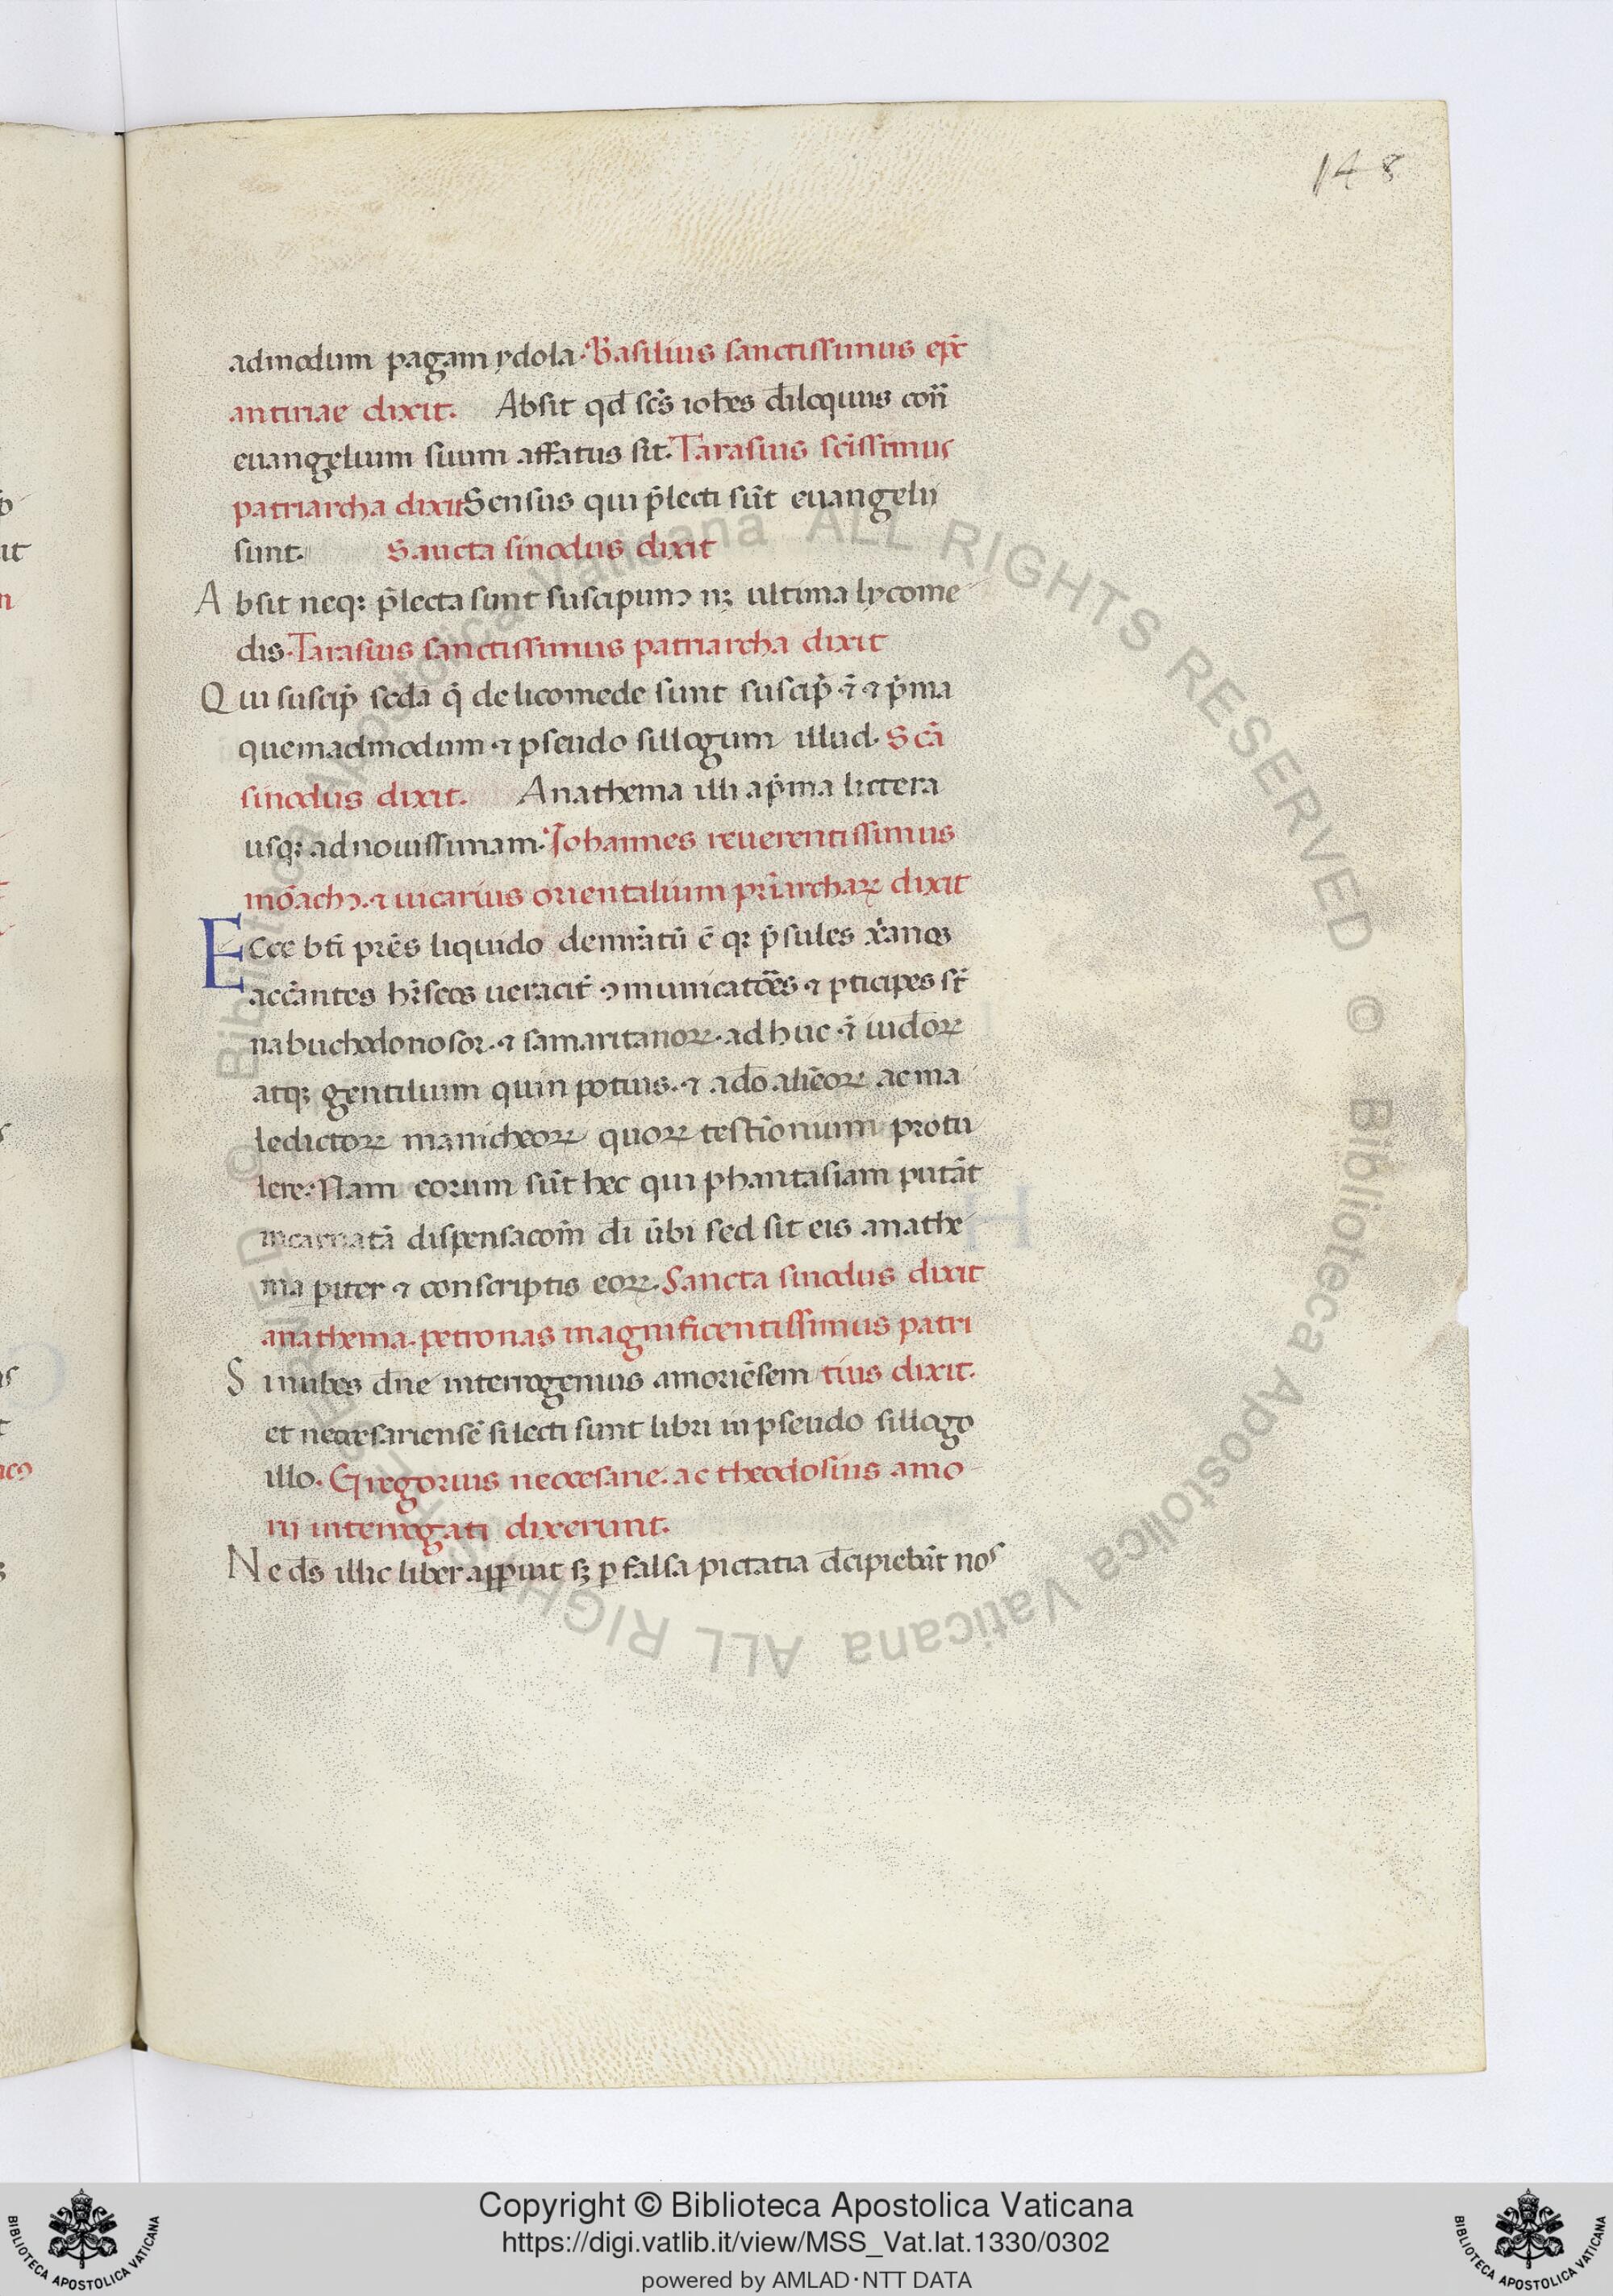 148
admodum pagani ydola. Basilius sanctissimus ep̄c
antiriae dixit. Absit qd̄ sc̄s ioh̄es d̄iloquus con̄
euangelium suum affatus sit. Tarasius sc̄issimus
patriarcha dixit Sensus qui p̄lecti sūt euangelij
sunt. Sancta sinodus dixit
Absit neqꝫ p̄lecta sunt suscipimꝰ nꝫ ultima lycome
dis. Tarasius sanctissimus patriarcha dixit
Qui suscip̄ sc̄da q̄ de licomede sunt suscip̄ ⁊ ⁊ p̄ma
quemadmodum ⁊ pseudo sillogum illud. Sc̄a
sinodus dixit. Anathema illi a p̄ma littera
usqꝫ ad nouissimam. Iohannes reuerentissimus
mōachꝰ. ⁊ uicarius orientalium pr̄iarchaꝝ dixit
Ecce bt̄i pr̄es liquido demr̄atū ē qꝫ p̄sules xr̄anos
accūantes hr̄seos ueracit̄ ꝯmunicatōes ⁊ pticipes st̄
nabuchodonosor. ⁊ samaritanoꝝ. adhuc ⁊ iudōꝝ
atqꝫ gentilium quin potius. ⁊ ad̄o aliēoꝝ ac ma
ledictoꝝ manicheoꝝ quoꝝ testīonium protu
lere. Nam eorum sūt hec qui phantasiam putāt
incarnatā dispensacom̄ d̄i ūbi sed sit eis anathe
ma piter ⁊ conscriptis eoꝝ. Sancta sinodus dixit
anathema. petronas magnificentissimus patri
Si iubes dn̄e interrogemus amoriēsem tius dixit.
et neocesariensē si lecti sunt libri in pseudo sillogo
illo. Gregorius neocesarie. ac theodosius amo
rij interrogati dixerunt.
Ne d̄s illic liber apparuit sꝫ p falsa pictatia d̄cipiebāt nos
Copyright © Biblioteca Apostolica Vaticana
https://digi.vatlib.it/view/MSS_Vat.lat.1330/0302
powered by AMLAD·NTT DATA